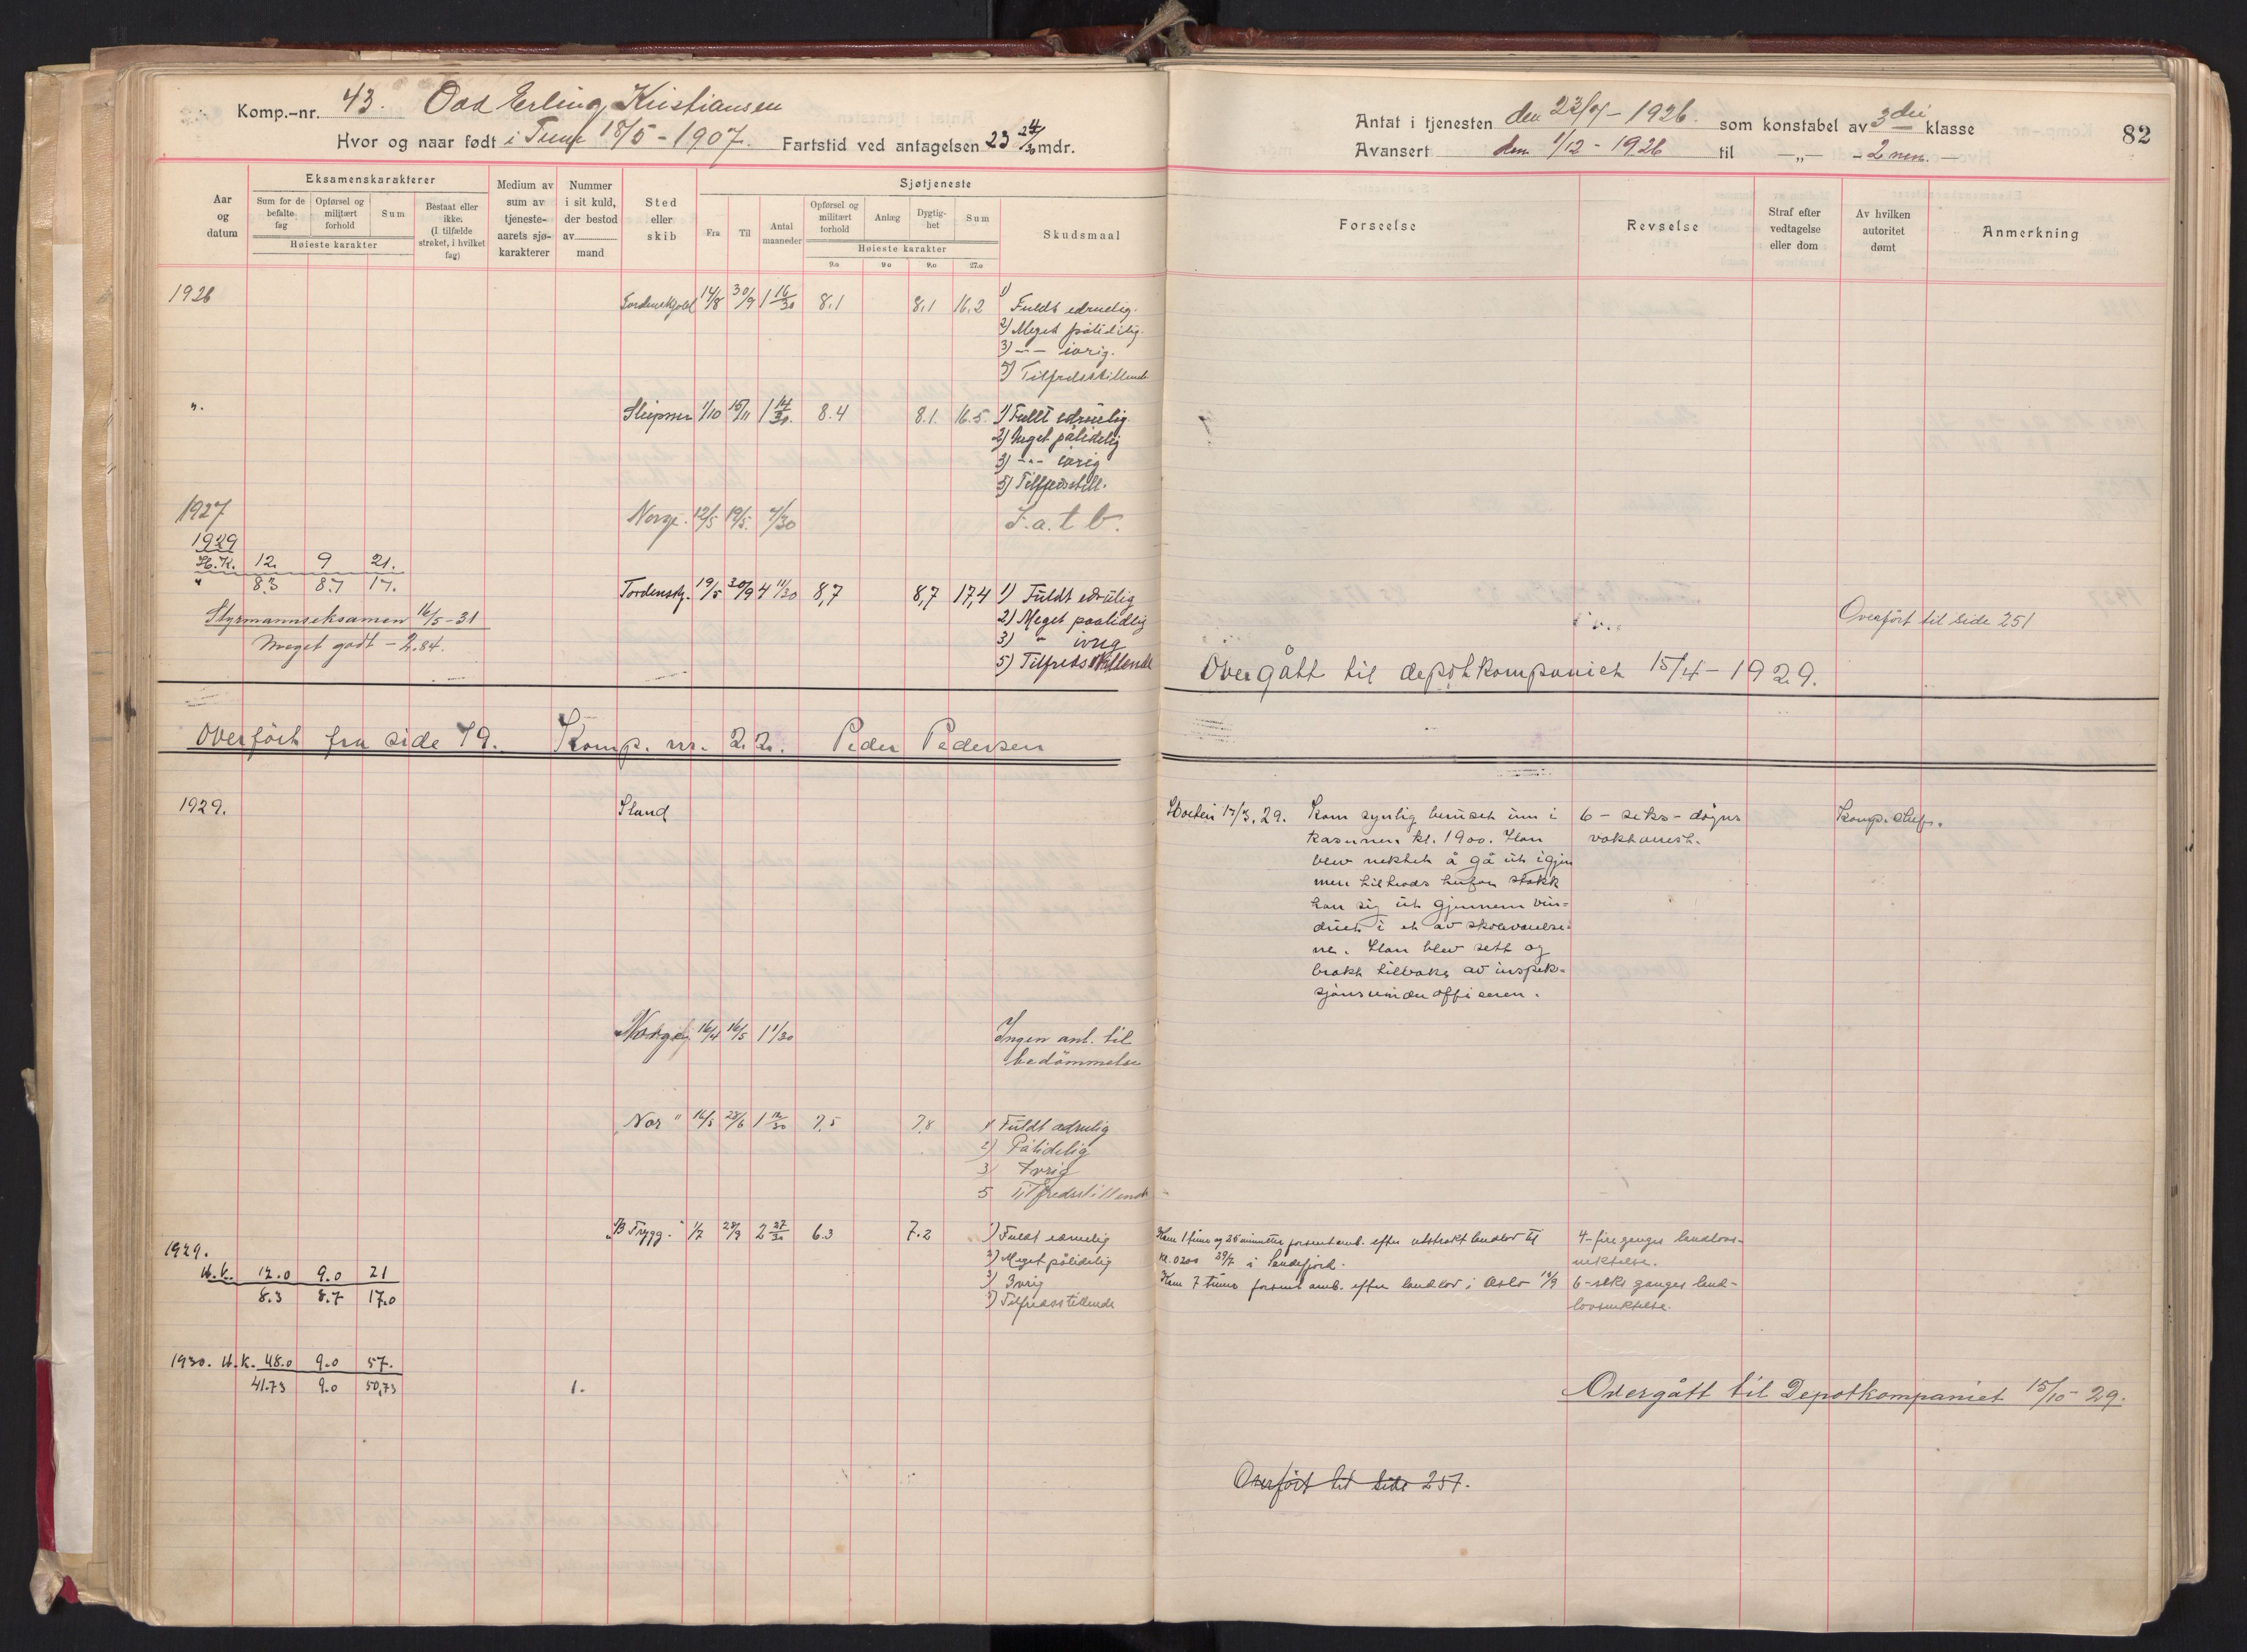 Komp.-nr. 43. Odd Erling Kristiansen
Hvor og naar født i Tune 18/5 - 1907. Fartstid ved antagelsen 23 24/30 mdr.
Aar og datum
Eksamenskarakterer
Sum for de befalte fag
Opførsel og militært forhold
Sum
Høieste karakter
Bestaat eller ikke. (I tilfælde strøket, i hvilket fag)
Medium av sum av tjeneste-aarets sjø-karakterer
Nummer i sit kuld, der bestod av mand
Sted eller skib
Sjøtjeneste
Fra
Til
Antal maaneder
Opførsel og militært forhold
Anlæg
Dygtig-het
Sum
Høieste karakter
9.0 9.0 9.0 27.0
Skudsmaal
1926 Tordenskjold 14/8 30/9 1 16/30 8.1 8.1 16.2 1) Fuldt edruelig.
2) Meget pålidelig.
3) -"- ivrig.
5) Tilfredsstillende.
". Sleipner 1/10 15/11 1 14/30. 8.4 8.1. 16.5. 1) Fullt edruelig.
2) Meget pålidelig
3) -"- ivrig
5) Tilfredsstill.
1927 Norge. 12/5 19/5. 7/30 I. a. t. b.
1929
H.K. 12. 9 21.
" 8.3 8.7 17.
Tordenskj. 19/5 30/9 4 11/30 8,7 8,7 17,4 1) Fuldt edrulig
Styrmannseksamen 16/5-31 2) Meget paalidlig
Meget godt - 2.84. 3) " ivrig
5) Tilfredsstillende
Overført fra side 79. Komp. nr. 22. Peder Pedersen
1929. I land
"Norge" 16/4 16/5 1 1/30 Ingen anl. til
bedømmelse
"Nor" 16/5 28/6 1 12/30 7,5 7,8 1) Fuldt ædrulig
2) Pålidelig
3) Ivrig
5 Tilfredsstillende
"B Trygg." 1/7 28/9 2 27/30 6.3 7.2 1) Fuldt edruelig
1929. 2) Meget pålidelig
H.K. 12.0 9.0 21 3) Ivrig
8.3 8.7 17.0 5) Tilfredsstillende
1930. H.K. 48.0 9.0 57.
41.73 9.0 50,73 1.
Antat i tjenesten den 23/4 - 1926. som konstabel av 3die klasse
82
Avansert den 1/12 - 1926 til -„- - 2nen. -
Forseelse
Revselse
Straf efter vedtagelse eller dom
Av hvilken autoritet dømt
Anmerkning
Overført til side 251
Overgått til depotkompaniet 15/4 - 1929.
Horten 17/3. 29. Kom synlig beruset inn i 6 - seks - døgns Komp. chef.
kasernen kl. 1900. Han vaktarrest.
blev nektet å gå ut igjen
men tiltrods herfor stakk
han sig ut gjennem vin-
duet i et av skoleværelse-
ne. Han blev sett og
brakt tilbake av inspek-
sjonsunderofficeren.
Kom 1 time og 35 minutter forsent omb. efter utstrakt landlov til 4-fire ganges landlovs-
kl. 0200 29/7 i Sandefjord. nektelse.
Kom 7 timer forsent omb. efter landlov i Oslo 10/9 6-seks ganges land-
lovsnektelse.
Overgått til Depotkompaniet 15/10 - 29.
Overført til side 257.